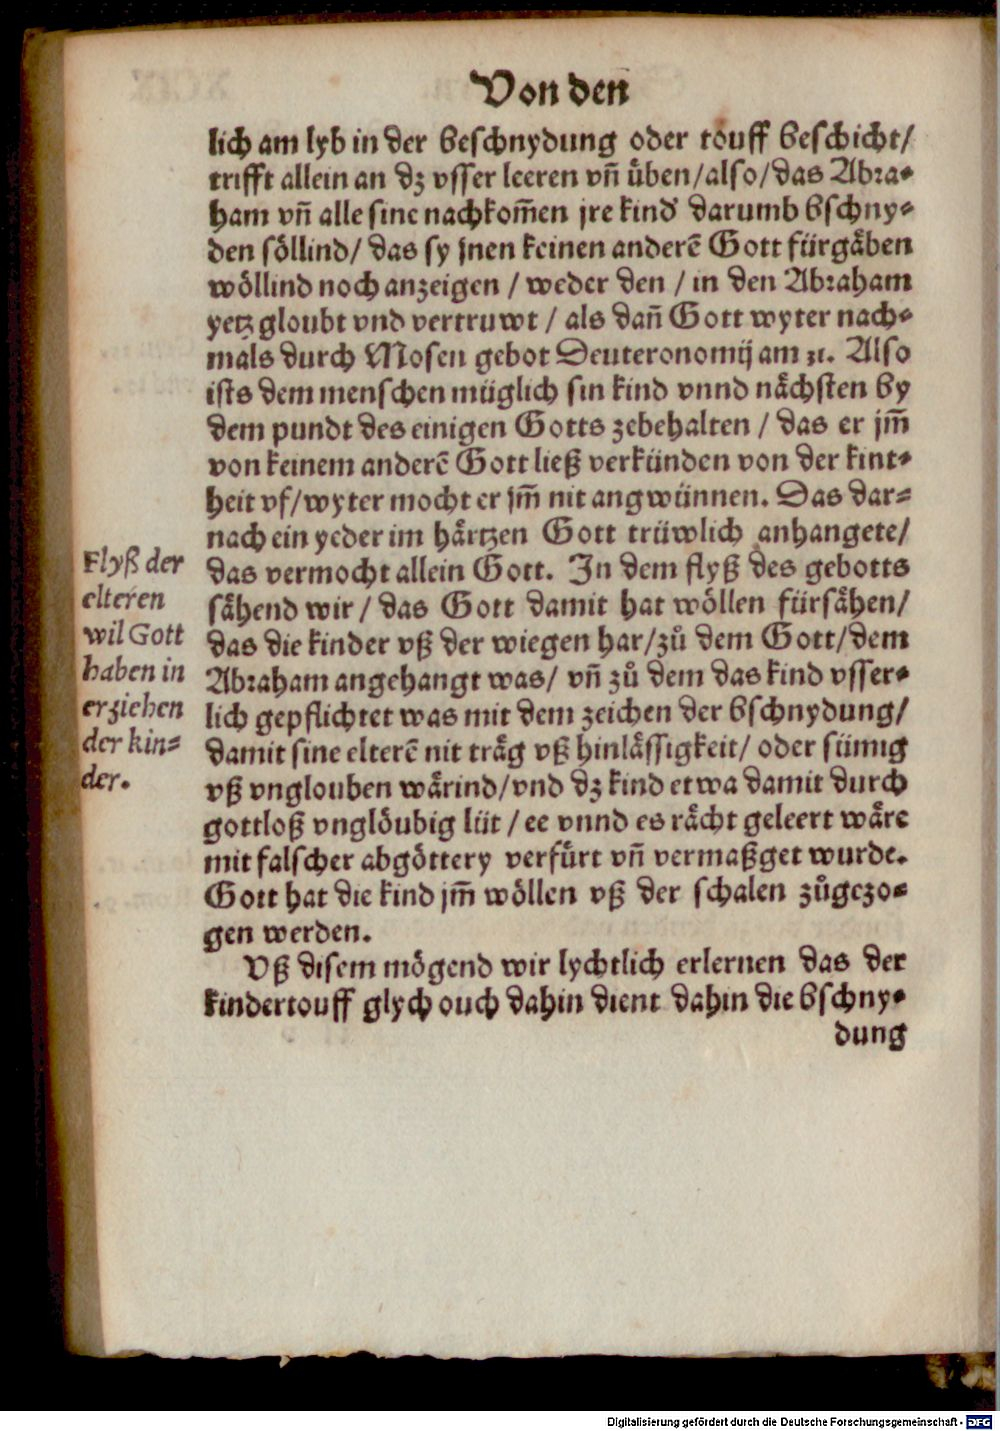 Von den
lich am lyb in der beschnydung oder touff beschicht/
trifft allein an dz vsser leeren vñ üben/also/das Abra⸗
ham vñ alle sine nachkom̃en jre kind darumb bschny⸗
den söllind/ das sy jnen keinen anderẽ Gott fürgäben
wöllind noch anzeigen / weder den / in den Abraham
yetz gloubt vnd vertruwt / als dañ Gott wyter nach⸗
mals durch Mosen gebot Deuteronomij am 31. Also
ists dem menschen müglich sin kind vnnd nächsten by
dem pundt des einigen Gotts zebehalten / das er jm̃
von keinem anderẽ Gott ließ verkünden von der kint⸗
heit vf/wyter mocht er jm̃ nit angwünnen. Das dar⸗
nach ein yeder im härtzen Gott trüwlich anhangete/
das vermocht allein Gott. In dem flyß des gebotts
sähend wir / das Gott damit hat wöllen fürsähen/
das die kinder vß der wiegen har/zů dem Gott/dem
Abraham angehangt was/ vñ zů dem das kind vsser⸗
lich gepflichtet was mit dem zeichen der bschnydung/
damit sine elterẽ nit träg vß hinlässigkeit/ oder sümig
vß vnglouben wärind/vnd dz kind etwa damit durch
gottloß vnglöubig lüt / ee vnnd es rächt geleert wäre
mit falscher abgöttery verfürt vñ vermaßget wurde.
Gott hat die kind jm̃ wöllen vß der schalen zůgezo⸗
gen werden.
Vß disem mögend wir lychtlich erlernen das der
kindertouff glych ouch dahin dient dahin die bschny⸗
dung
Flyß der
elteren
wil Gott
haben in
erziehen
der kin⸗
der.
Digitalisierung gefördert durch die Deutsche Forschungsgemeinschaft - DFG